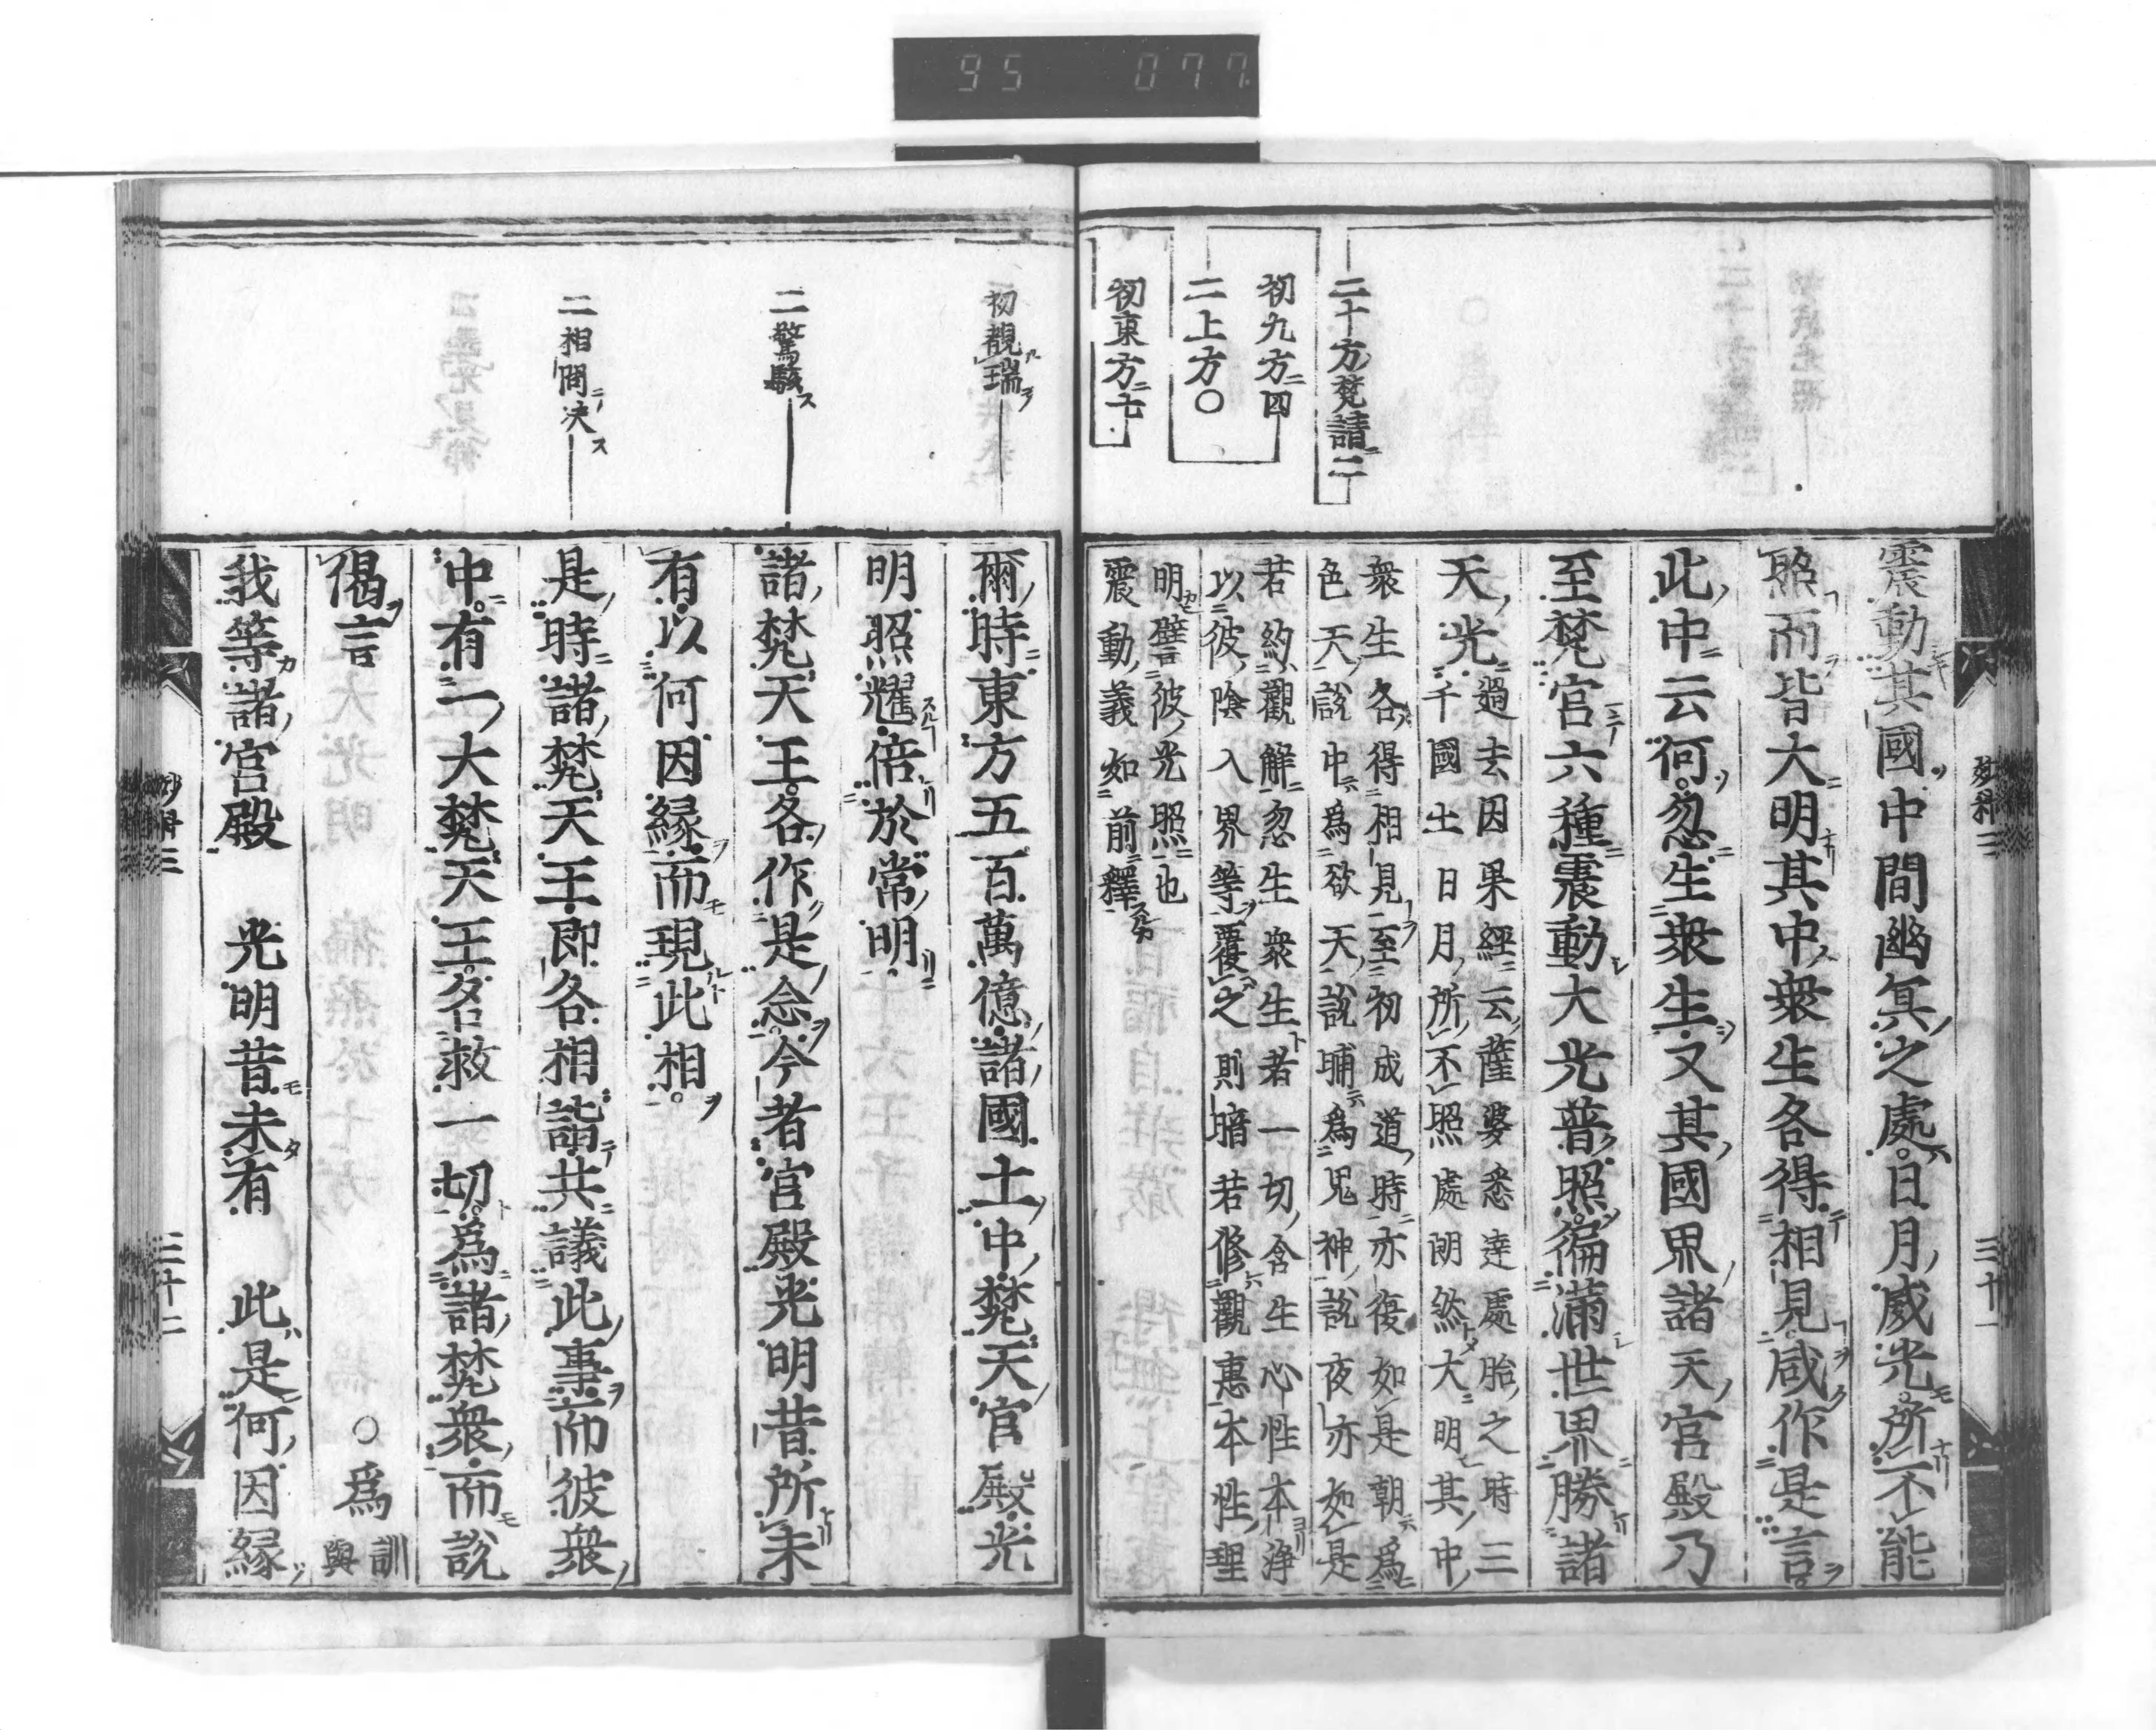 95 077
二十方梵請二
初九方四
二上方○
初東方七
震動其國中間幽冥之處日月威光所不能
照而皆大明其中衆生各得相見咸作是言
此中云何忽生衆生又其國界諸天宮殿乃
至梵宮六種震動大光普照徧滿世界勝諸
天光
過去因果經云薩婆悉達處胎之時三
千國土日月所不照處朗然大明其中
衆生各得相見至初成道時亦復如是朝爲
色天說中爲欲天說晡爲鬼神說夜亦如是
若約觀解忽生衆生者一切含生心性本淨
以彼陰入界等覆之則暗若修觀惠本性理
明譬彼光照也
震動義如前釋
三十一
初覩瑞
二驚駭
二相問決
爾時東方五百萬億諸國土中梵天宮殿光
明照耀倍於常明
諸梵天王各作是念今者宮殿光明昔所未
有以何因緣而現此相
是時諸梵天王即各相詣共議此事而彼衆
中有一大梵天王名救一切爲諸梵衆而說
偈言　○爲
訓
與
我等諸宮殿　光明昔未有　此是何因緣
三十二